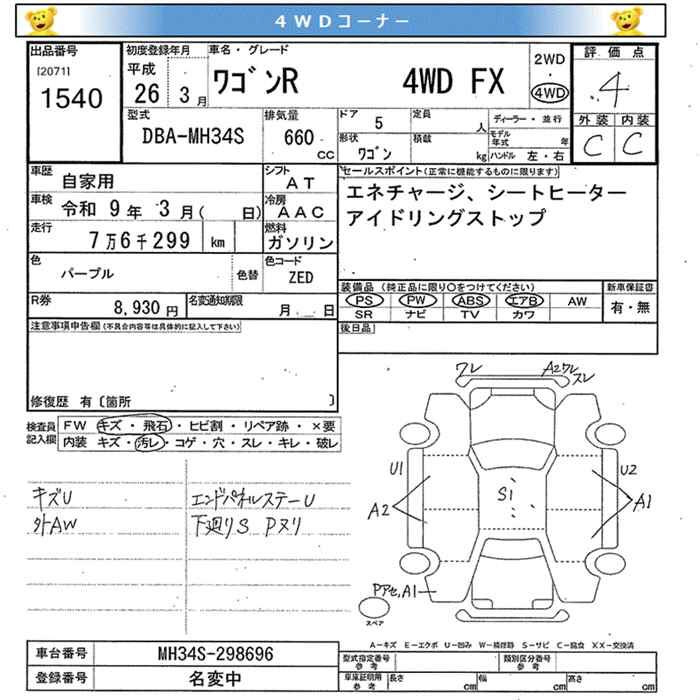 4WDコーナー
出品番号 [2071] 1540
初度登録年月 平成 26 3月
車名・グレード ワゴンR 4WD FX
2WD・4WD
評価点 4
外装 C 内装 C
型式 DBA-MH34S
排気量 660 cc
ドア 5
形状 ワゴン
定員 人
積載 kg
ディーラー・並行
モデル年式 年
ハンドル 左・右
車歴 自家用
シフト AT
車検 令和 9年 3月( 日)
冷房 AAC
走行 7万6千299 km
燃料 ガソリン
色 パープル 色替
色コード ZED
R券 8,930円
名変通知期限 月 日
セールスポイント(正常に機能するものに限ります)
エネチャージ、シートヒーター
アイドリングストップ
装備品 (純正品に限り○をつけてください)
PS PW ABS エアB AW
SR ナビ TV カワ
新車保証書 有・無
後日品
注意事項申告欄(不具合内容等は具体的に記入して下さい)
修復歴 有〔箇所 〕
検査員記入欄
FW キズ・飛石・ヒビ割・リペア跡・×要
内装 キズ・汚レ・コゲ・穴・スレ・キレ・破レ
キズU
外AW
エンドパネルステーU
下廻りS Pヌリ
ワレ
A2ワレ
スレ
U1
U2
S1
A2
A1
Pアセ,A1
スペア
A−キズ E−エクボ U−凹み W−補修跡 S−サビ C−腐食 XX−交換済
車台番号 MH34S-298696
登録番号 名変中
型式指定番号 参考
類別区分番号 参考
車庫証明用 参考
長さ cm
幅 cm
高さ cm